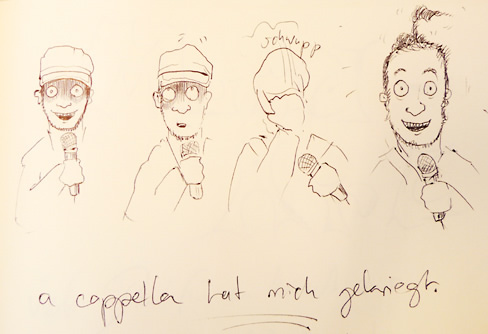 schwupp
a cappella hat mich gekriegt.